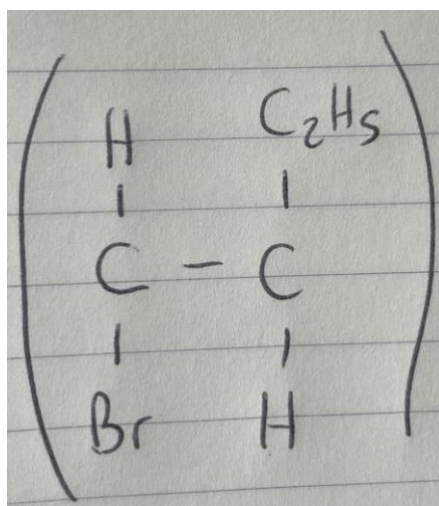 H C₂H₅
C - C
Br H